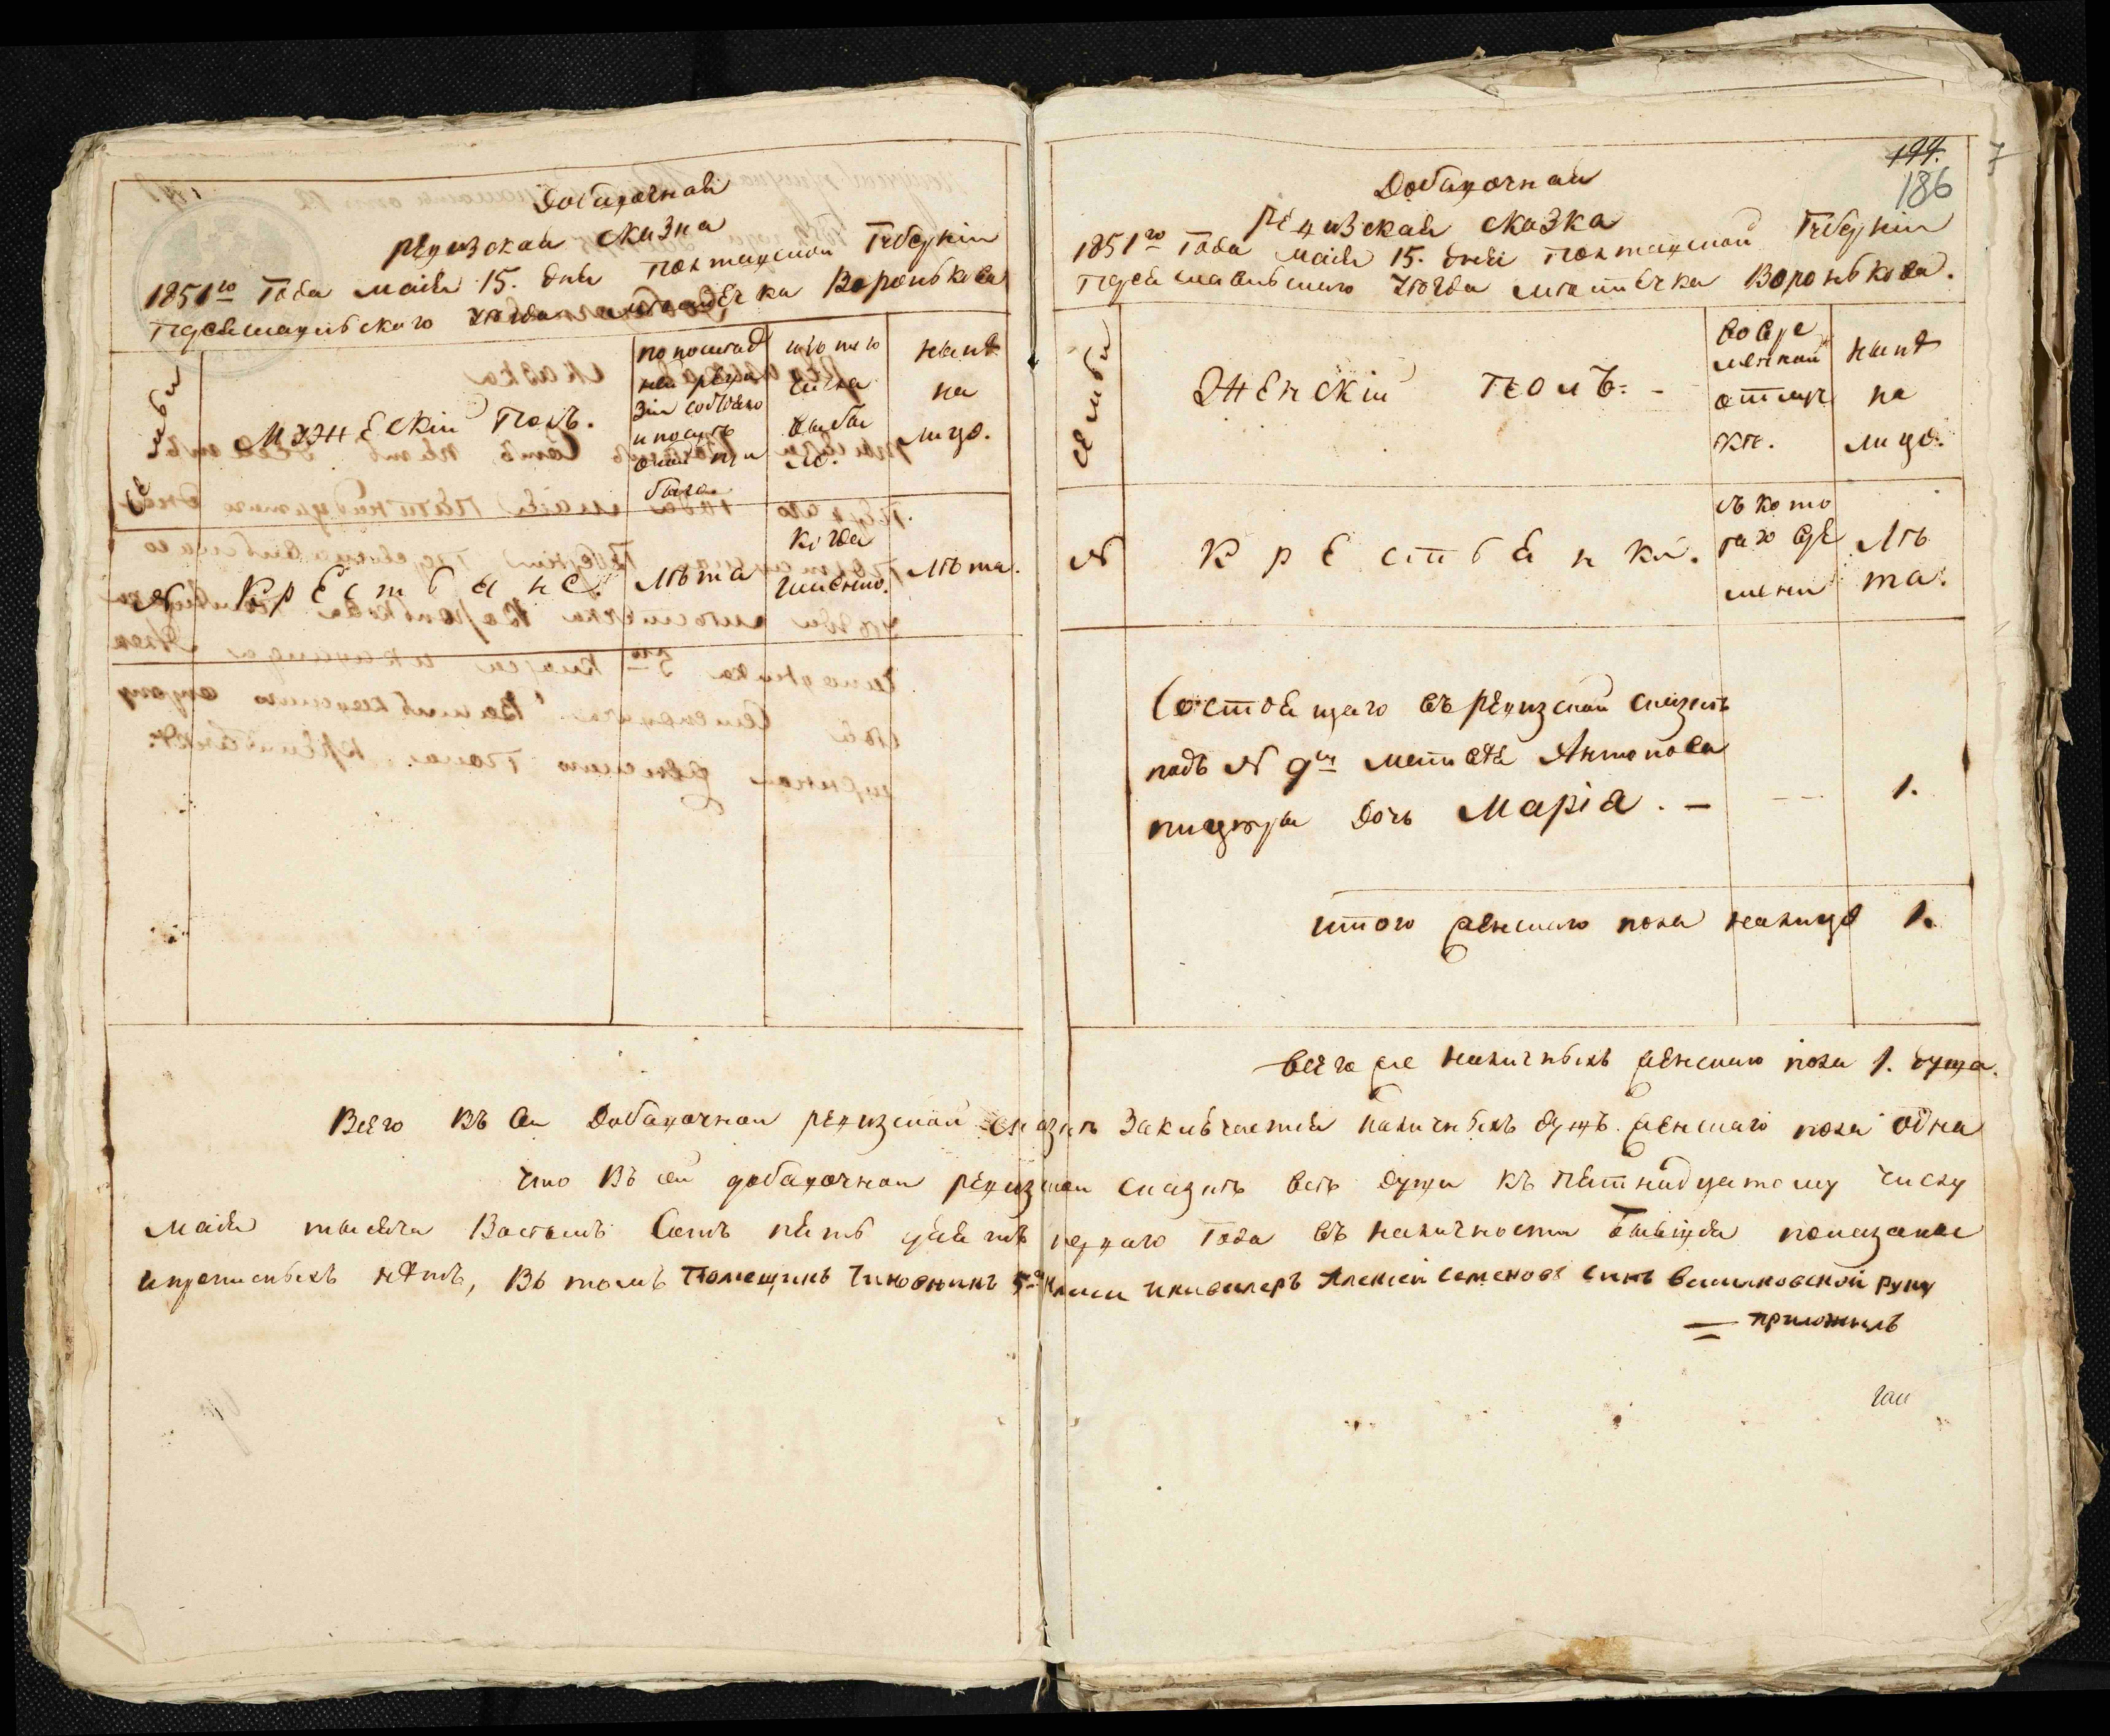 Добавочная
ревизская сказка
1851го Года маія 15. дня Полтавской Губерніи
Переяславского уезда местечка Воронькова
Семьи
Мужескій полъ.
по послед
ней реви
зіи состояло
и после
оной при
было
изъ того
числа
выбы
ло.
ныне
на
лицо.
№
Крестьяне.
лета
Когда
именно.
лета.
194.
186
7
Добавочная
ревизская сказка
1851го Года маія 15. дня Полтавской Губерніи
Переяславского уезда местечка Воронькова.
Семьи
Женскій полъ.
во вре
менной
отлуч
ке.
ныне
на
лицо.
№
Крестьянки.
съ кото
раго вре
мени
Ле
та.
Состоящаго въ ревизской сказке
подъ № 9м Матвея Антонова
дочь Марія. — 1.
итого женскаго пола налицо 1.
Всего же наличныхъ женскаго пола 1. душа.
Всего въ сей Добавочной ревизской сказке Заключается наличныхъ душъ женскаго пола одна
что въ сей добавочной ревизской сказке все души къ пятнадцатому числу
маія тысяча Восемъ Сотъ пять десятъ перваго Года въ наличности бывшія показаны
и прописныхъ нетъ, въ томъ Помещикъ Чиновникъ 5го Класа и кавалеръ Алексей Семеновъ синъ Василковской руку
приложилъ